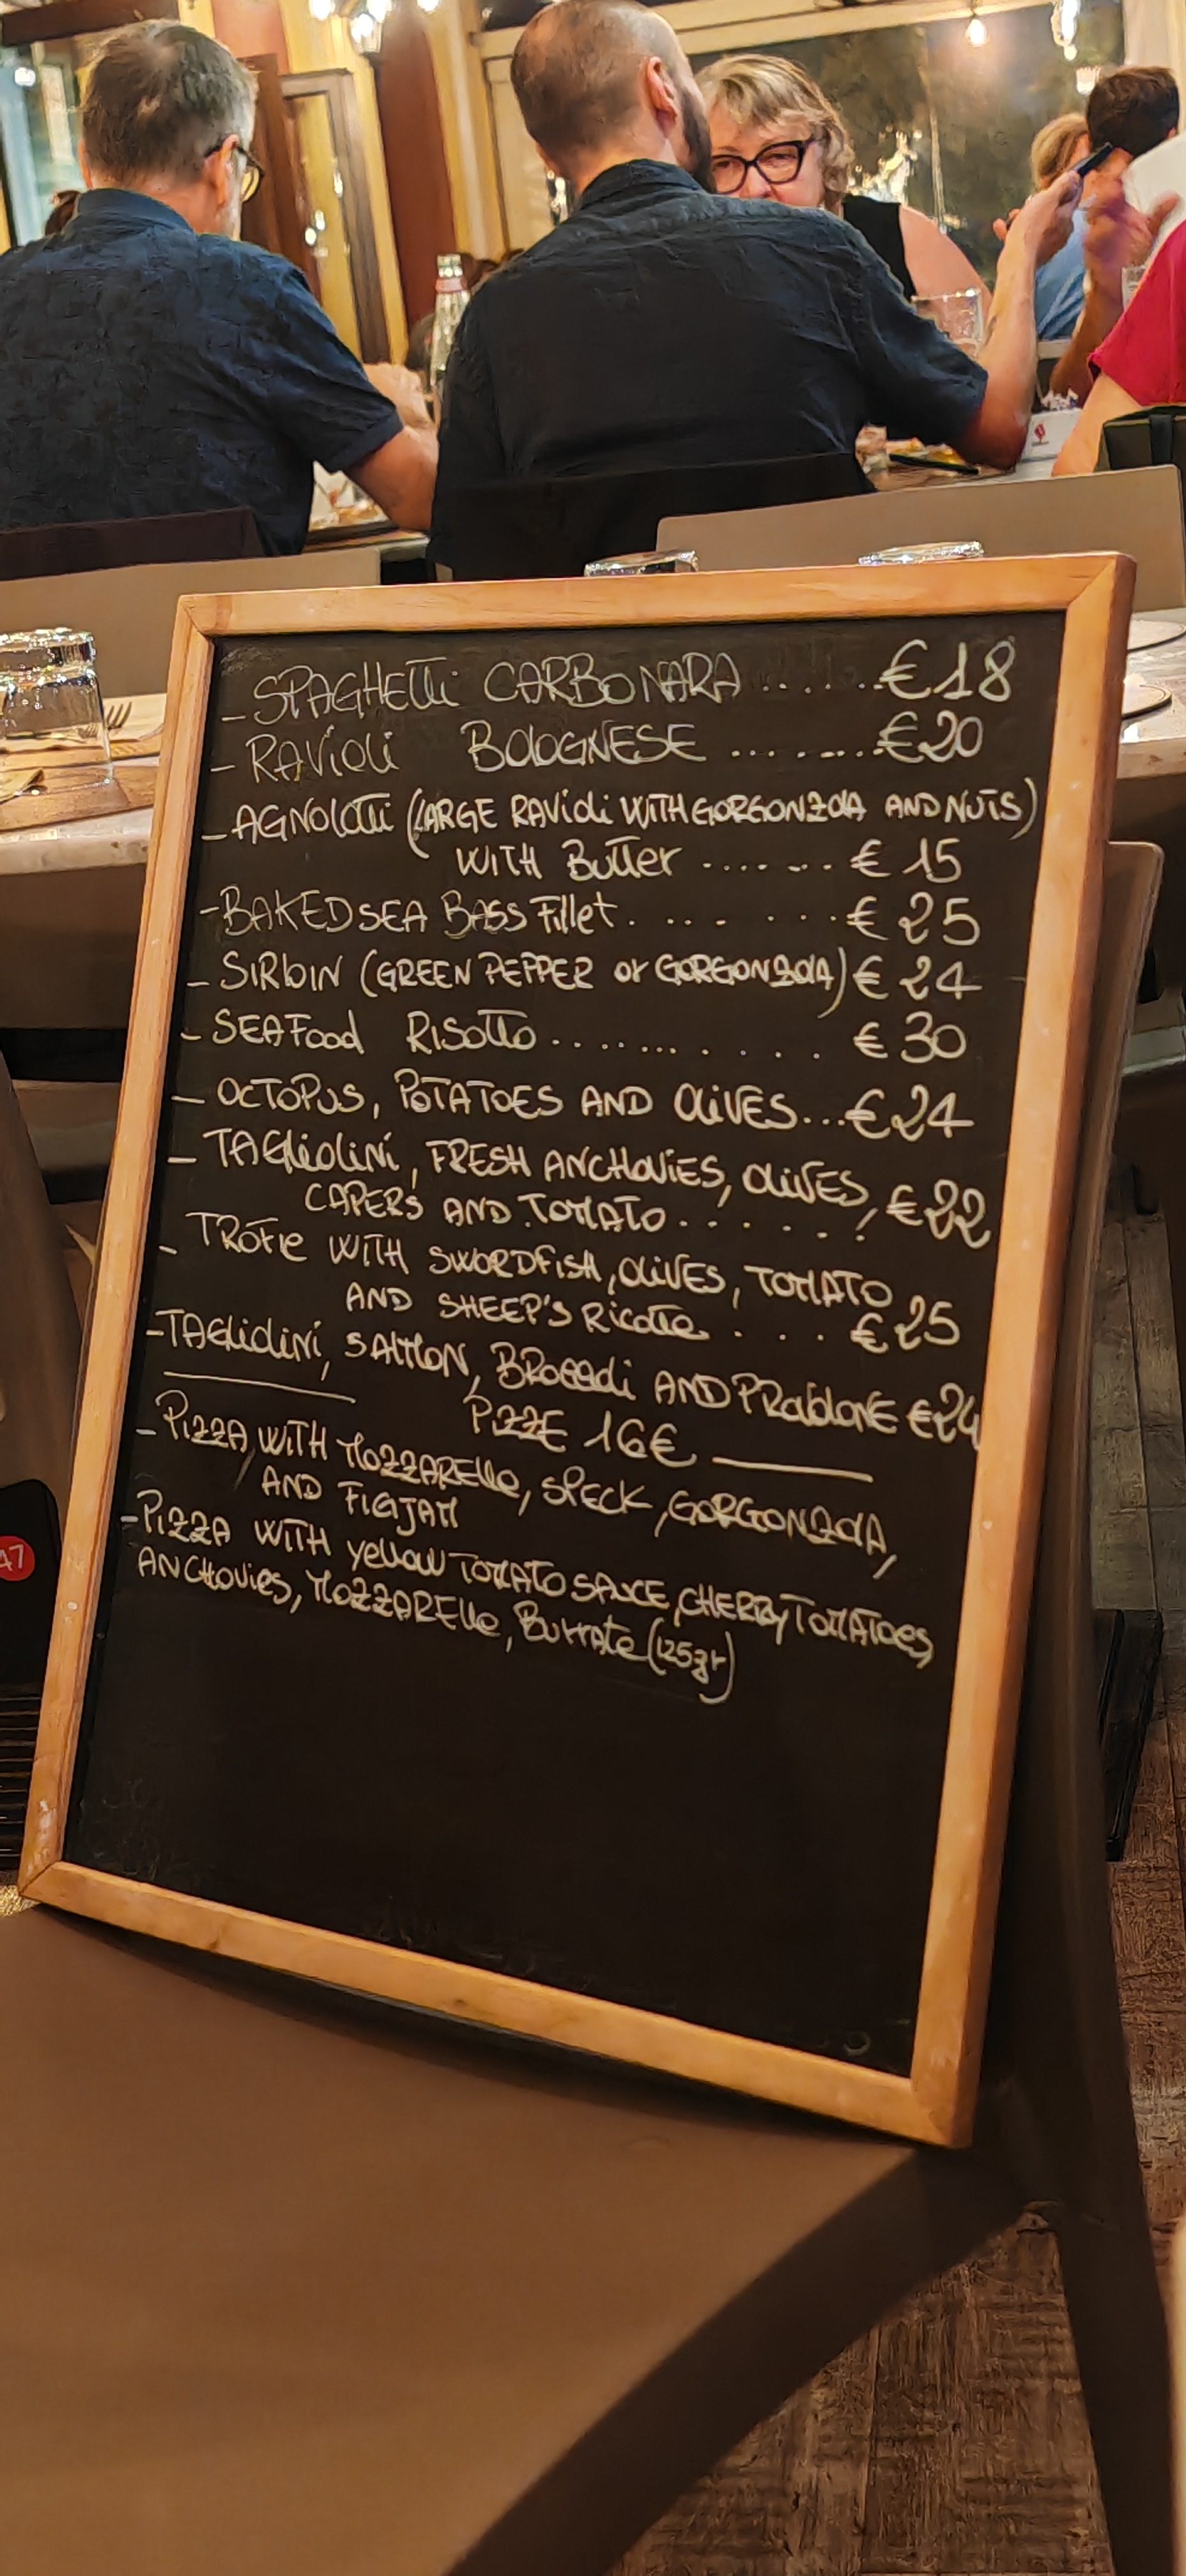 - SPAGHETTI CARBONARA ....... €18
- RAVIOLI BOLOGNESE ........ €20
- AGNOLOTTI (LARGE RAVIOLI WITH GORGONZOLA AND NUTS)
WITH BUTTER ....... € 15
- BAKED SEA BASS FILLET. ... ... € 25
- SIRLOIN (GREEN PEPPER or GORGONZOLA) € 24
- SEAFOOD RISOTTO........... € 30
- OCTOPUS, POTATOES AND OLIVES...€24
- TAGLIOLINI, FRESH ANCHOVIES, OLIVES, €22
CAPERS AND TOMATO......
- TROFIE WITH SWORDFISH, OLIVES, TOMATO
AND SHEEP'S RICOTTA.... €25
- TAGLIOLINI, SALMON, BROCCOLI AND €24
PIZZE 16€
- PIZZA, WITH MOZZARELLA, SPECK, GORGONZOLA,
AND FIGJAM
- PIZZA WITH YELLOW TOMATO SAUCE, CHERRY TOMATOES,
ANCHOVIES, MOZZARELLA, BURRATA (125gr)
47